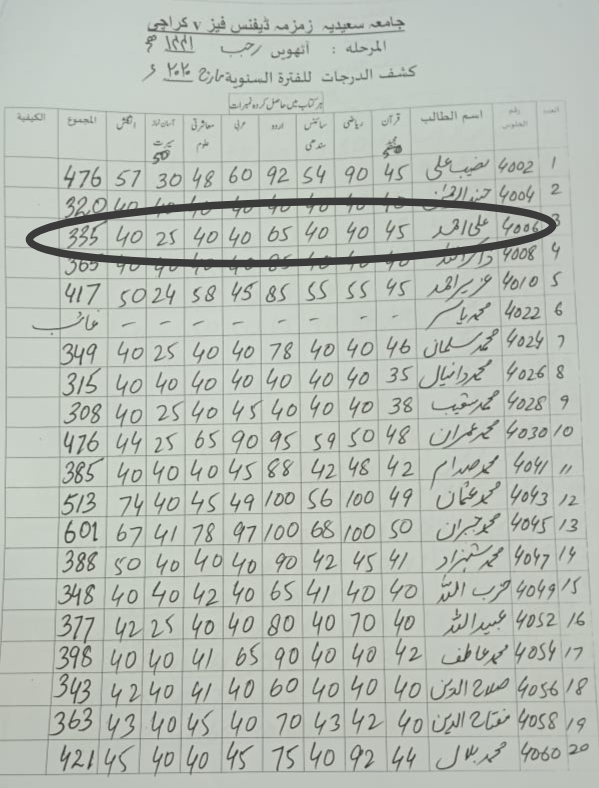 جامعہ سعیدیہ زمزمہ ڈیفنس فیز ٧ کراچی
المرحلہ : آٹھویں رجب ١٤٤١ھ
کشف الدرجات للفترة السنویة مارچ ٢٠٢٠ء
ہر کتاب میں حاصل کردہ نمبرات
العدد رقم الجلوس اسم الطالب قرآن مجید ریاضی سائنس سندھی اردو عربی معاشرتی علوم آسان نماز سیرت 50 انگلش المجموع الکیفیة
1 4002 نصیب علی 45 90 54 92 60 48 30 57 476
2 4004 40 320
3 4006 علی احمد 45 40 40 65 40 40 25 40 335
4 4008 ذاکر اللہ 85 40 365
5 4010 عزیر احمد 45 55 55 85 45 58 24 50 417
6 4022 محمد یاسر - - - - - - - - غائب
7 4024 محمد سلمان 46 40 40 78 40 40 25 40 349
8 4026 محمد دانیال 35 40 40 40 40 40 40 40 315
9 4028 محمد 38 40 40 40 45 40 25 40 308
10 4030 محمد عمران 48 50 59 95 90 65 25 44 476
11 4041 محمد صدام 42 48 42 88 45 40 40 40 385
12 4043 محمد عثمان 49 100 56 100 49 45 40 74 513
13 4045 محمد جبران 50 100 68 100 97 78 41 67 601
14 4047 محمد شہزاد 41 45 42 90 40 40 40 50 388
15 4049 حزب اللہ 40 40 41 65 40 42 40 40 348
16 4052 عبید اللہ 40 70 40 80 40 40 25 42 377
17 4054 محمد عاطف 42 40 40 90 65 41 40 40 398
18 4056 صلاح الدین 40 40 40 60 40 41 40 42 343
19 4058 مفتاح الدین 40 42 43 70 40 45 40 43 363
20 4060 محمد بلال 44 92 40 75 45 40 40 45 421